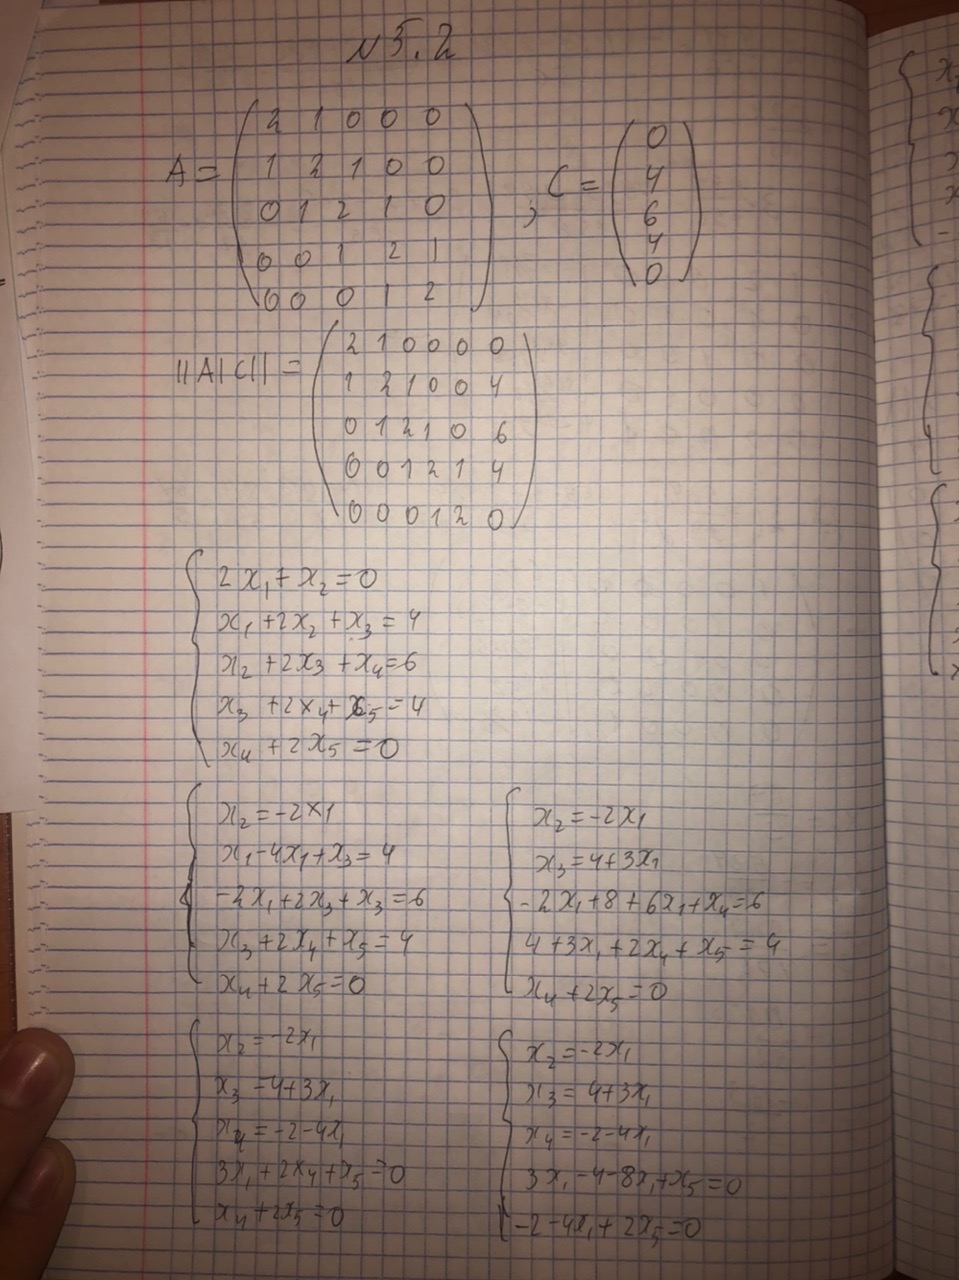 N 5.2
A = ( 2 1 0 0 0
1 2 1 0 0
0 1 2 1 0
0 0 1 2 1
0 0 0 1 2 ) ; C = ( 0
4
6
4
0 )
||A|C|| = ( 2 1 0 0 0 0
1 2 1 0 0 4
0 1 2 1 0 6
0 0 1 2 1 4
0 0 0 1 2 0 )
2x₁ + x₂ = 0
x₁ + 2x₂ + x₃ = 4
x₂ + 2x₃ + x₄ = 6
x₃ + 2x₄ + x₅ = 4
x₄ + 2x₅ = 0
x₂ = -2x1
x₁ - 4x₁ + x₃ = 4
-2x₁ + 2x₃ + x₃ = 6
x₃ + 2x₄ + x₅ = 4
x₄ + 2x₅ = 0
x₂ = -2x₁
x₃ = 4 + 3x₁
-2x₁ + 8 + 6x₁ + x₄ = 6
4 + 3x₁ + 2x₄ + x₅ = 4
x₄ + 2x₅ = 0
x₂ = -2x₁
x₃ = 4 + 3x₁
x₄ = -2 - 4x₁
3x₁ + 2x₄ + x₅ = 0
x₄ + 2x₅ = 0
x₂ = -2x₁
x₃ = 4 + 3x₁
x₄ = -2 - 4x₁
3x₁ - 4 - 8x₁ + x₅ = 0
-2 - 4x₁ + 2x₅ = 0